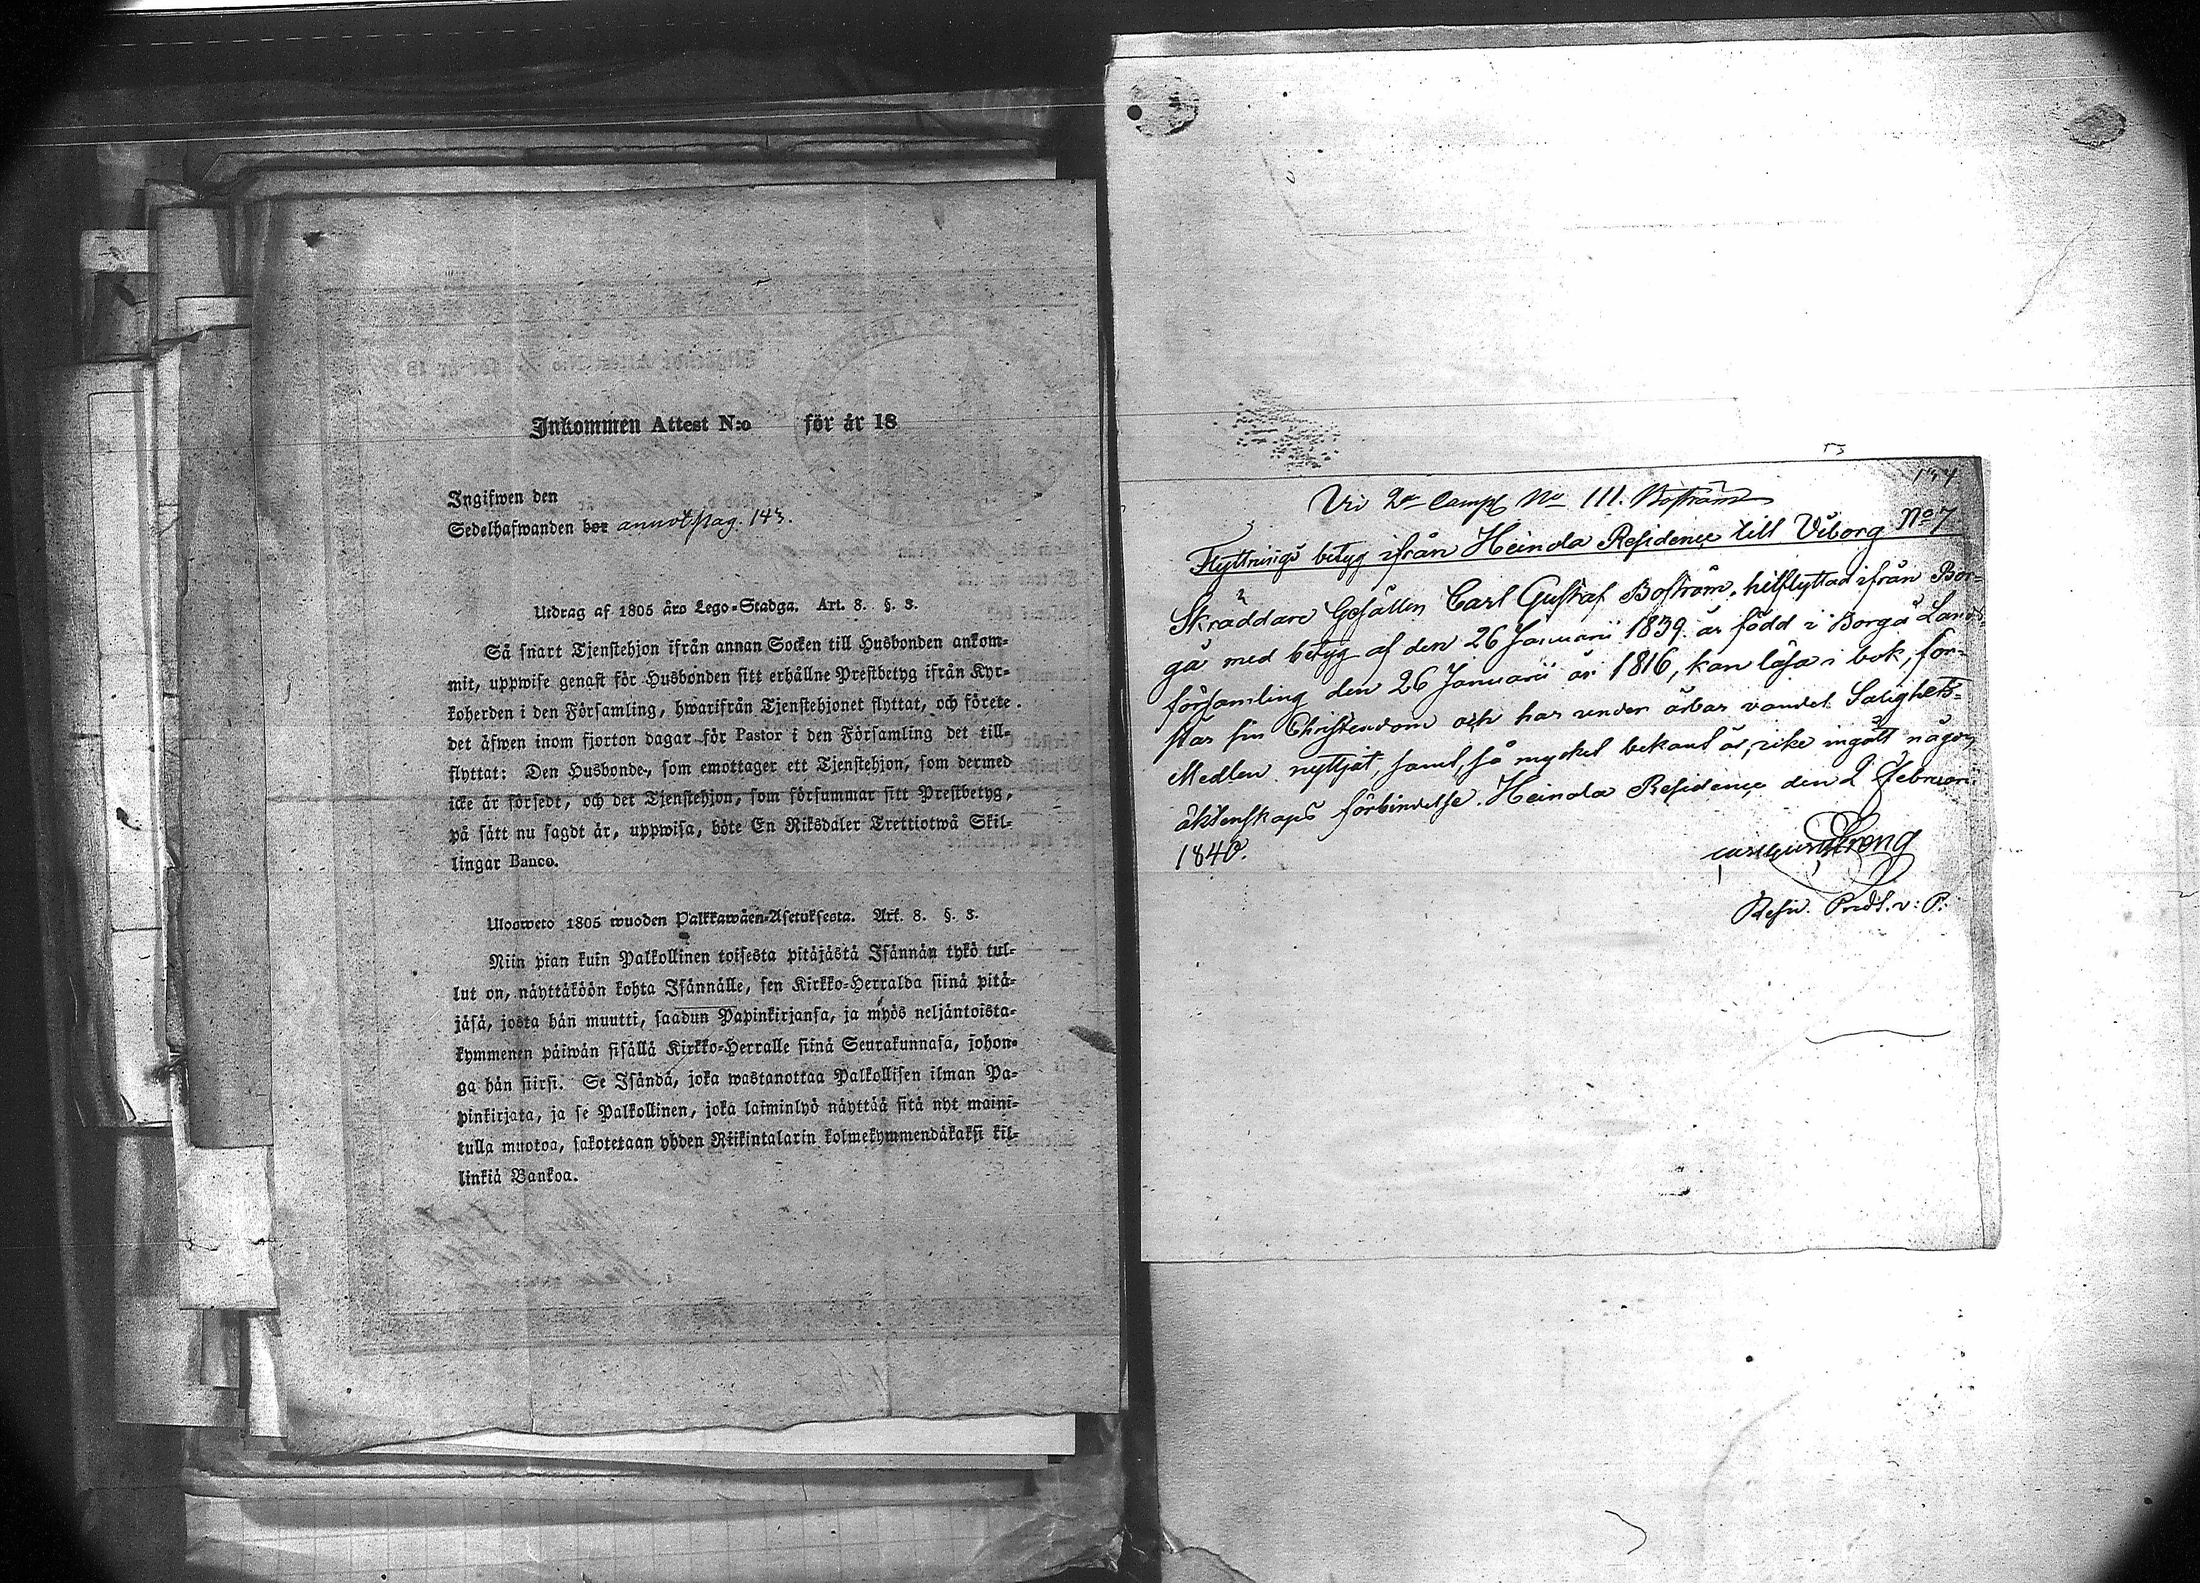 Inkommen Attest N:o för år 18
Ingifwen den
Sedelhafwanden bor annot pag. 143.
Utdrag af 1805 års Lego-Stadga. Art. 8. §. 3.
Så snart Tjenstehjon ifrån annan Socken till Husbonden ankom-
mit, uppwise genast för Husbonden sitt erhållne Prestbetyg ifrån Kyr-
koherden i den Församling, hwarifrån Tjenstehjonet flyttat, och förete
det äfwen inom fjorton dagar för Pastor i den Församling det till-
flyttat: Den Husbonde, som emottager ett Tjenstehjon, som dermed
icke är försedt, och det Tjenstehjon, som försummar sitt Prestbetyg,
på sätt nu sagdt är, uppwisa, böte En Riksdaler Trettiotwå Skil-
lingar Banco.
Ulosweto 1805 wuoden Palkkawäen-Asetuksesta. Art. 8. §. 3.
Niin pian kuin Palkollinen toisesta pitäjästä Isännän tykö tul-
lut on, näyttäköön kohta Isännälle, sen Kirkko-Herralda siinä pitä-
jäsä, josta hän muutti, saadun Papinkirjansa, ja myös neljäntoista-
kymmenen päiwän sisällä Kirkko-Herralle siinä Seurakunnasa, johon-
ga hän siirsi. Se Isändä, joka wastanottaa Palkollisen ilman Pa-
pinkirjata, ja se Palkollinen, joka laiminlyö näyttää sitä nyt maini-
tulla muotoa, sakotetaan yhden Riikintalarin kolmekymmendäkaksi kil-
linkiä Bankoa.
134
Vid 2a Camp No 111. Boström
Flyttnings betyg ifrån Heinola Residence till Viborg No 7
Skräddare Gesällen Carl Gustaf Boström, hitflyttad ifrån Bor-
gå med betyg af den 26 Januarii 1839. är född i Borgå Lands
församling den 26 Januarii år 1816, kan läsa i bok, för-
står sin Christendom och har under ärbar vandel Salighets-
Medlen nyttjat, samt, så mycket bekant är, icke ingått någon
äktenskaps förbindelse. Heinola Residence den 2 Februarii
1840.
Streng
v: P: